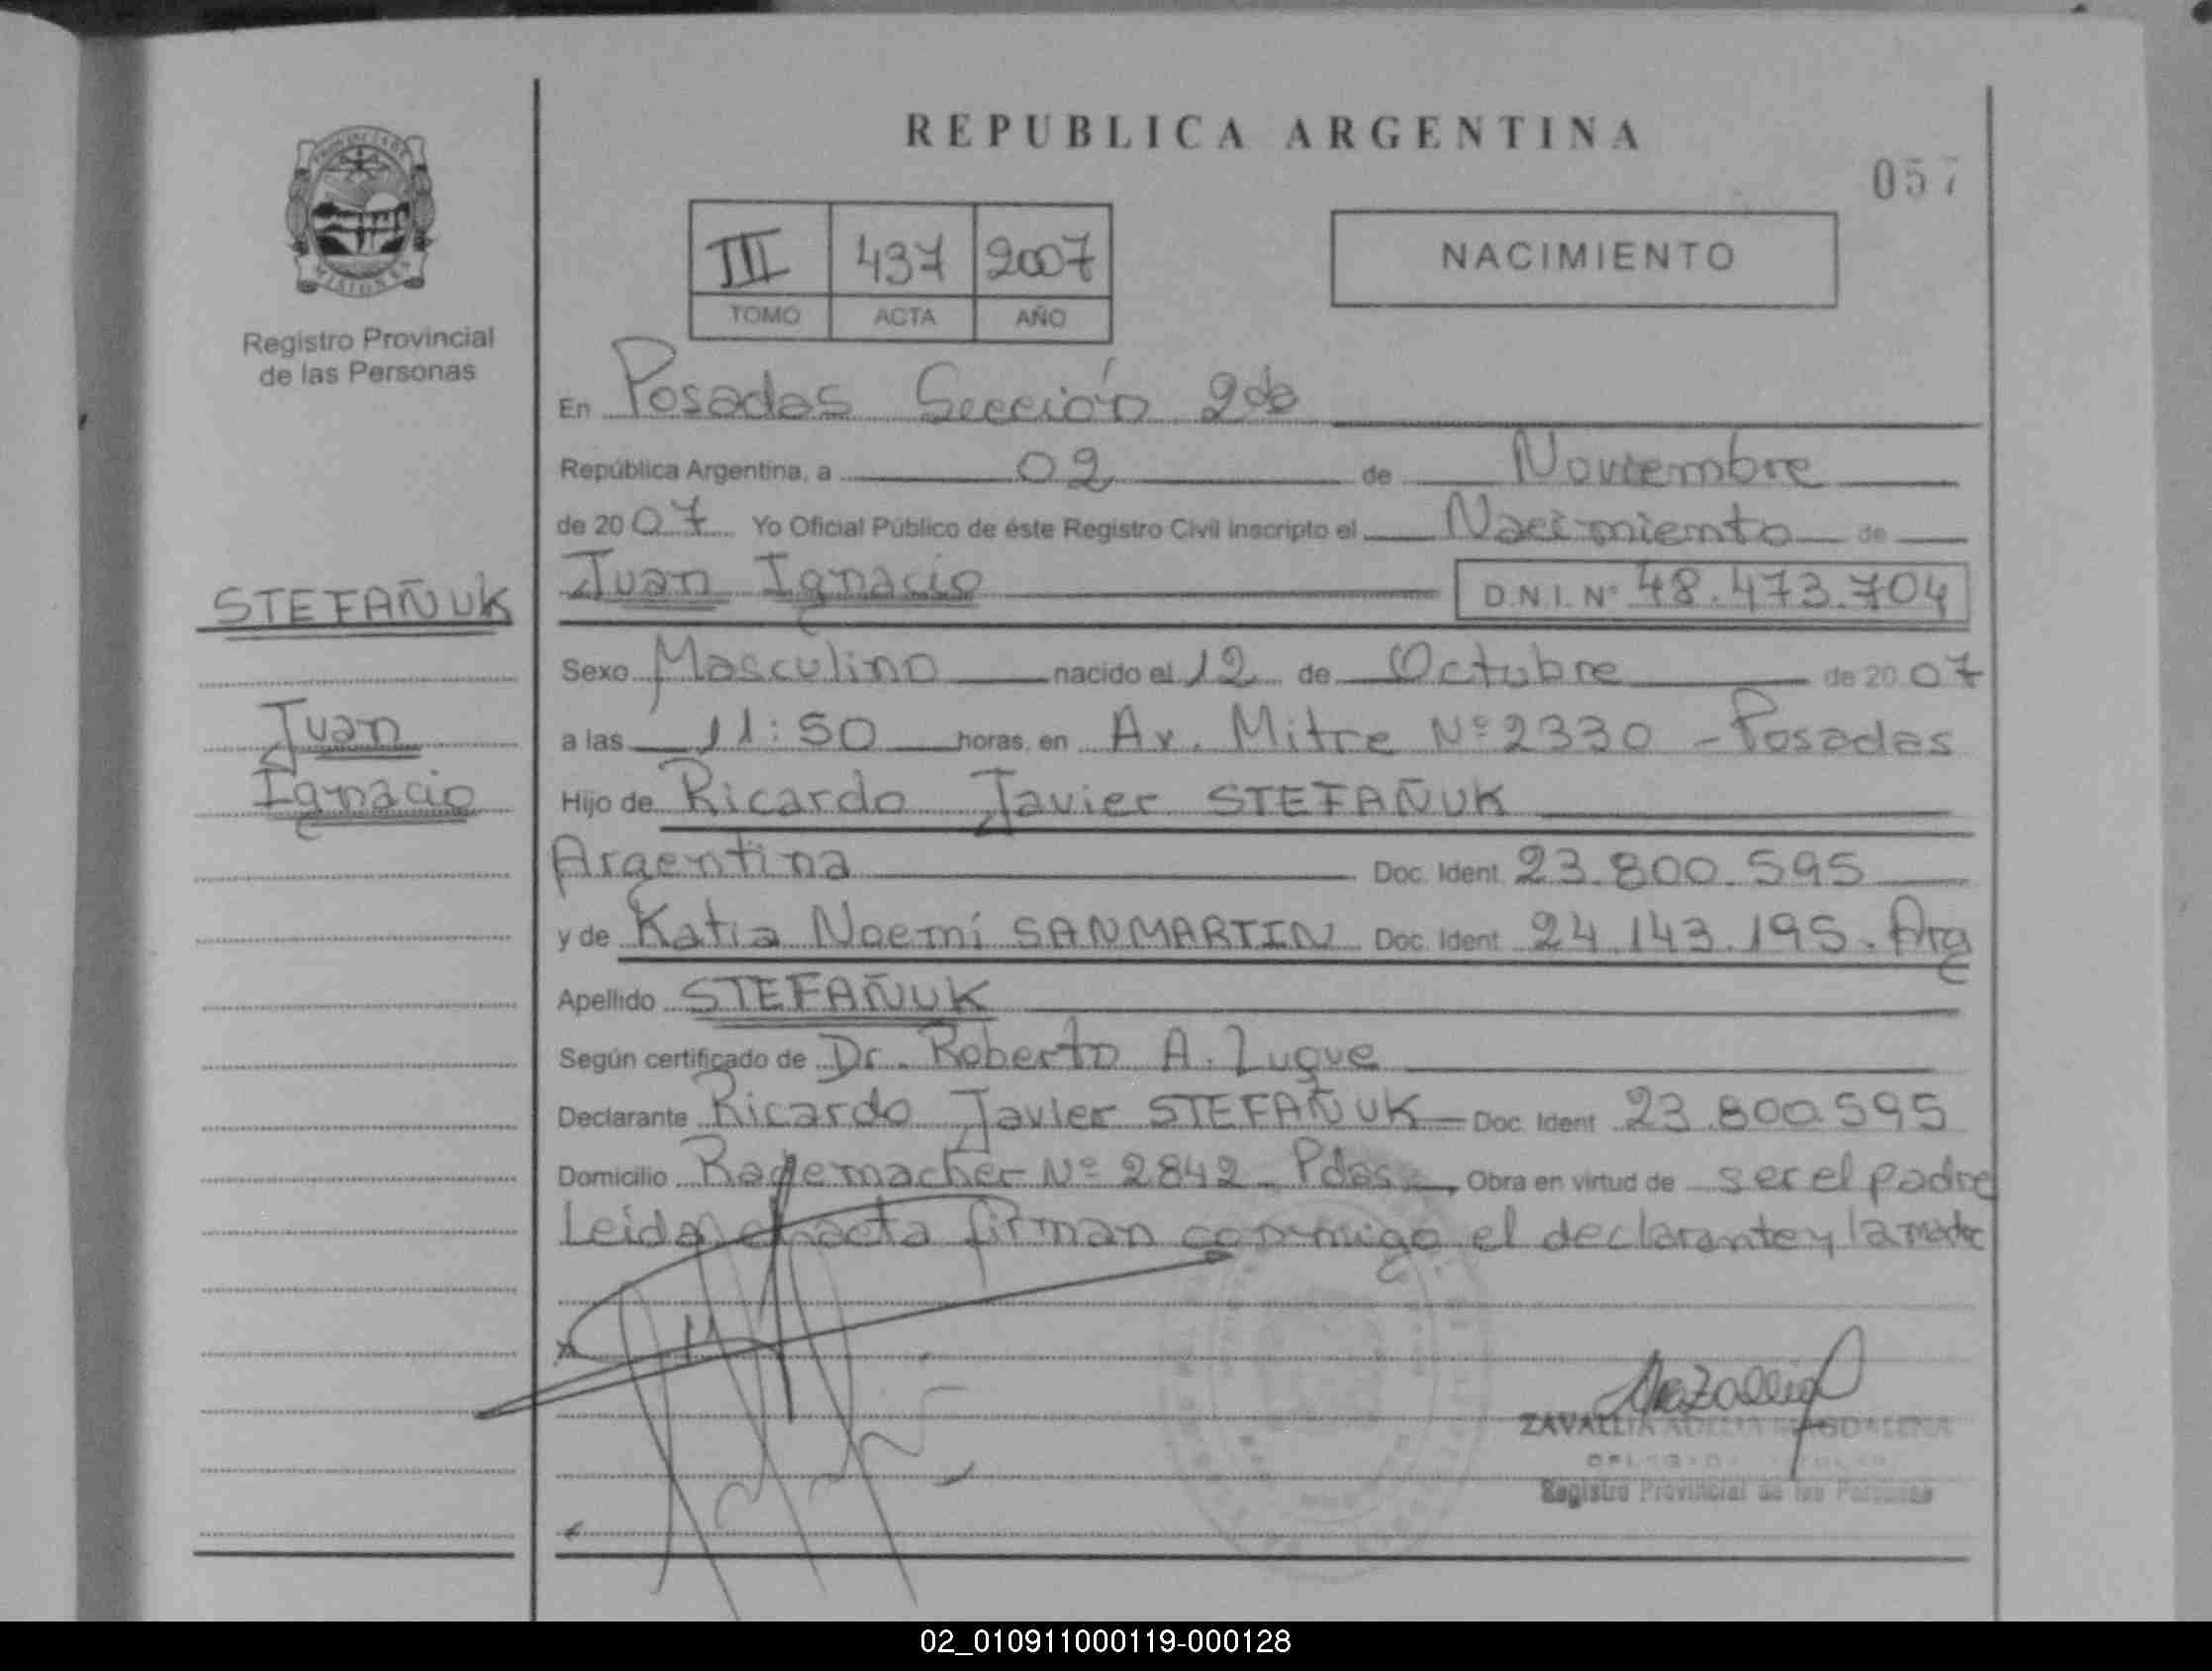 REPUBLICA ARGENTINA
057
PROVINCIA DE MISIONES
Registro Provincial
de las Personas
III 437 2007
TOMO ACTA AÑO
NACIMIENTO
En Posadas Sección 2da
República Argentina, a 02 de Noviembre
de 2007 Yo Oficial Público de éste Registro Civil inscripto el Nacimiento de
Juan Ignacio D.N.I. Nº 48.473.704
STEFAÑUK
Juan
Ignacio
Sexo Masculino nacido el 12 de Octubre de 2007
a las 11:50 horas, en Av. Mitre Nº 2330 - Posadas
Hijo de Ricardo Javier STEFAÑUK
Argentina Doc. Ident. 23.800.595
y de Katia Noemí SANMARTIN Doc. Ident. 24.143.195. Arg
Apellido STEFAÑUK
Según certificado de Dr. Roberto A. Luque
Declarante Ricardo Javier STEFAÑUK Doc. Ident. 23.800.595
Domicilio Rademacher Nº 2842 - Pdas. Obra en virtud de ser el padre
Leida el acta firman conmigo el declarante y la madre
ZAVALLIA ADELIA MAGDALENA
Registro Provincial de las Personas
02_010911000119-000128